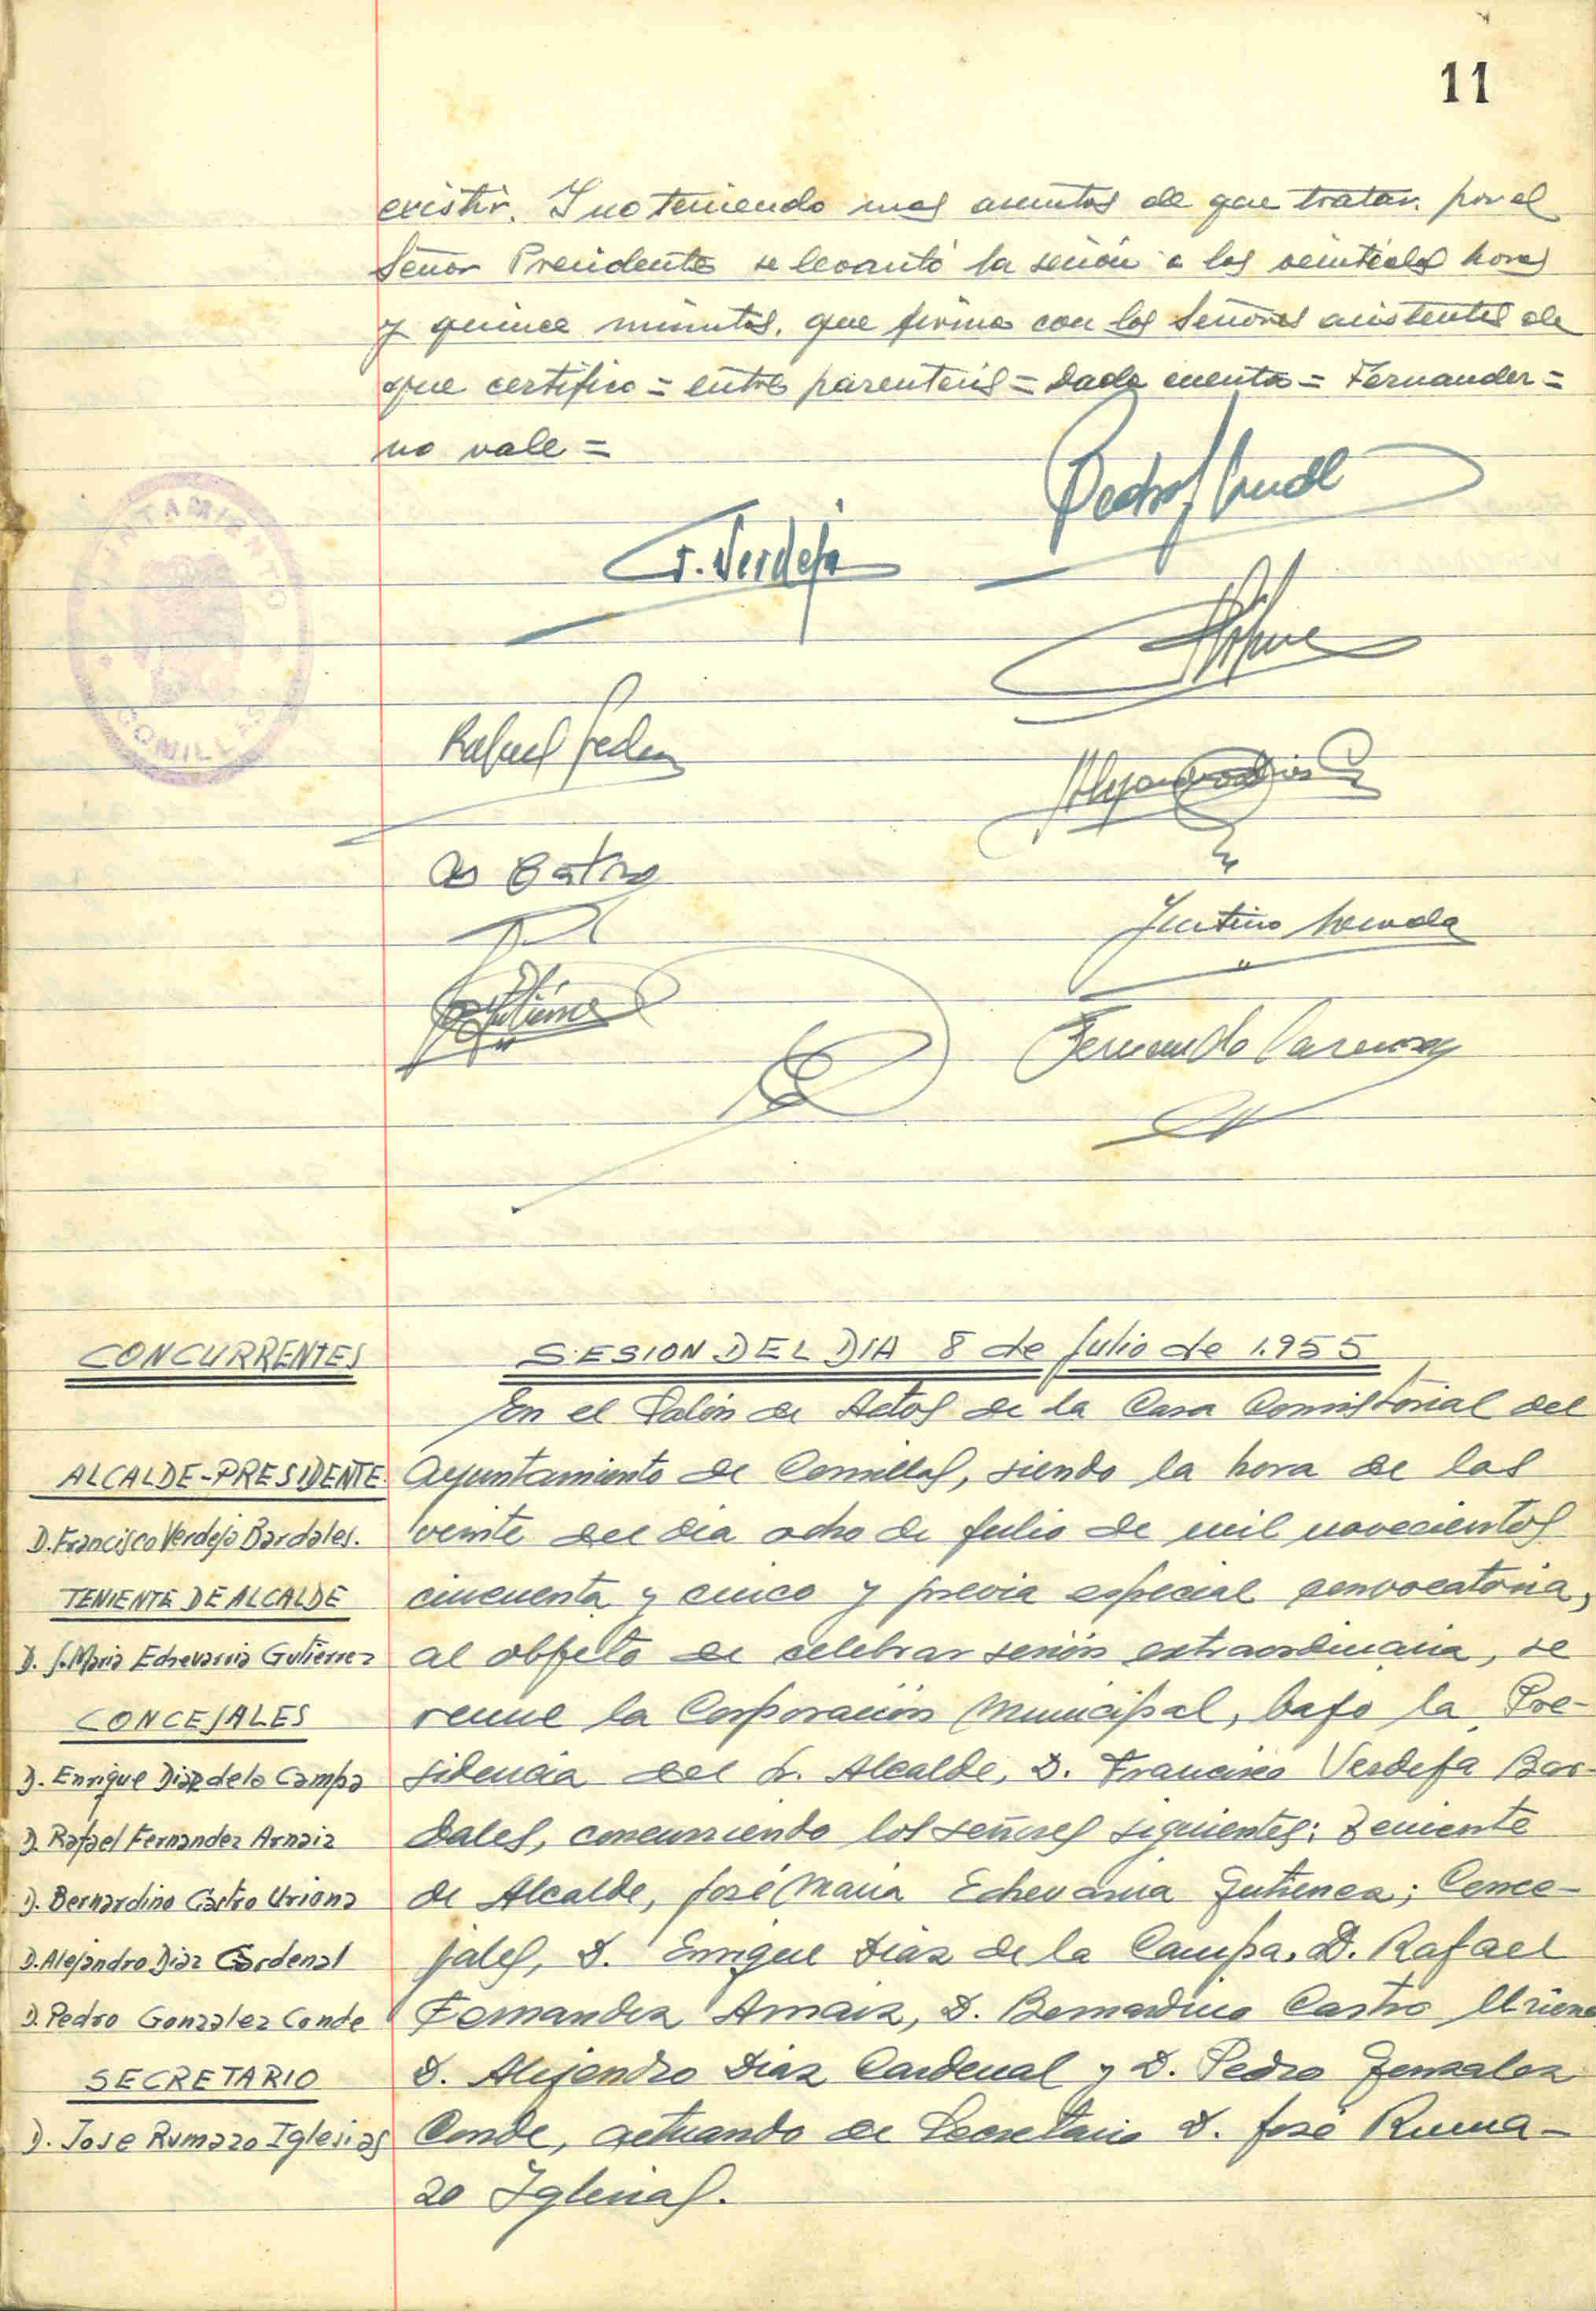 11
existir. Y no teniendo mas asuntos de que tratar. por el
Señor Presidente se levantó la sesión a las veintidos horas
y quince minutos. que firma con los Señores asistentes de
que certifico = entre parentesis = Dada cuenta = Fernandez =
no vale =
AYUNTAMIENTO
COMILLAS
F. Verdeja
Rafael
Castro
Fernando
CONCURRENTES
SESION DEL DIA 8 de Julio de 1.955
En el Salón de Actos de la Casa Consistorial del
ALCALDE-PRESIDENTE
Ayuntamiento de Comillas, siendo la hora de las
D. Francisco Verdeja Bardales.
veinte del dia ocho de Julio de mil novecientos
TENIENTE DE ALCALDE
cincuenta y cinco y previa especial convocatoria,
D. J. Maria Echevarria Gutierrez
al objeto de celebrar sesión extraordinaria, se
CONCEJALES
reune la Corporación Municipal, bajo la Pre-
D. Enrique Diaz de la Campa
sidencia del Sr. Alcalde, D. Francisco Verdeja Bar-
D. Rafael Fernandez Arnaiz
dales, concurriendo los señores siguientes: Teniente
D. Bernardino Castro Uriona
de Alcalde, José Maria Echevarria Gutierrez; Conce-
D. Alejandro Diaz Cardenal
jales, D. Enrique Diaz de la Campa, D. Rafael
D. Pedro Gonzalez Conde
Fernandez Arnaiz, D. Bernardino Castro Uriona
SECRETARIO
D. Alejandro Diaz Cardenal y D. Pedro Gonzalez
D. Jose Rumazo Iglesias
Conde, actuando de Secretario D. José Ruma-
zo Iglesias.